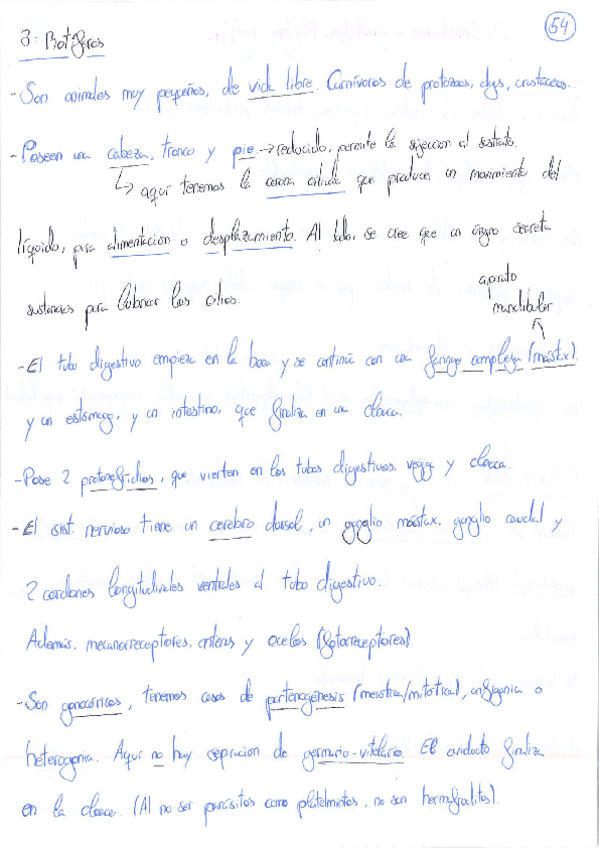 54
3: Rotíferos
- Son animales muy pequeños, de vida libre. Carnívoros de protozoos, algas, crustáceos.
- Poseen una cabeza, tronco y pie → reducido, permite la sujeccion al sustrato.
↳ aquí tenemos la corona ciliada que produce un movimiento del
líquido, para alimentación o desplazamiento. Al lado, se cree que un órgano secreta
sustancias para lubricar los cilios.
aparato
mandibular
- El tubo digestivo empieza en la boca y se continúa con una faringe compleja (mástax).
y un estómago, y un intestino, que finaliza en una cloaca.
- Posee 2 protonefridios, que vierten en los tubos digestivos, vejiga y cloaca.
- El sist. nervioso tiene un cerebro dorsal, un ganglio mástax, ganglio caudal y
2 cordones longitudinales ventrales al tubo digestivo.
Además, mecanorreceptores, antenas y ocelos (fotorreceptores).
- Son gonocóricos, tenemos casos de partenogénesis (meiótica/mitótica), anfigonia o
heterogonia. Aquí no hay separacion de germario-vitelario. El oviducto finaliza
en la cloaca. (Al no ser parásitos como platelmintos, no son hermafroditas).